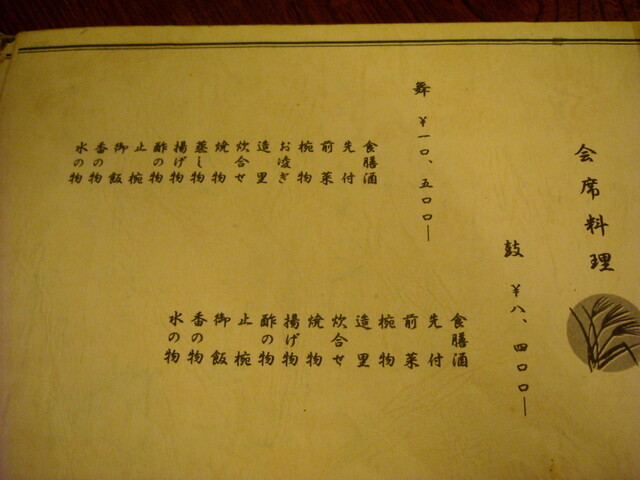 会席料理
鼓 ¥八、四〇〇―
食膳酒
先付
前菜
椀物
造里
炊合せ
焼物
揚げ物
酢の物
止椀
御飯
香の物
水の物
舞 ¥一〇、五〇〇―
食膳酒
先付
前菜
椀物
お凌ぎ
造里
炊合せ
焼物
蒸し物
揚げ物
酢の物
止椀
御飯
香の物
水の物